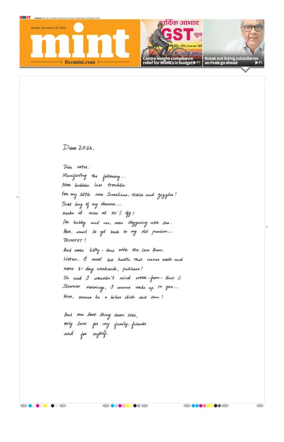 mint
Monday, December 29, 2025
mint
livemint.com
हार्दिक आभार
GST
Centre weighs compliance
relief for MSMEs in budget ▶P1
Kotak not listing subsidiaries
as rivals go ahead ▶P1
Dear 2026,
Take notes.
Manifesting the following...
More bubble less trouble.
For my little one Sunshine, tickle and giggles!
That bag of my dreams...
make it mine at 50% off!
For hubby and me, more staycation with
Also, want to get back to my old passion...
TRUMPET!
And more kitty-time with Ms. Coco Bean.
Listen, I want less hustle that never ends and
more 3-day weekends, pretteee!
Oh and I wouldn't mind work-from-Bali!!
Slower mornings, I wanna wake up to you...
Also, wanna be a biker chick and
And one last thing dear 2026,
only love for my family, friends
and for myself.